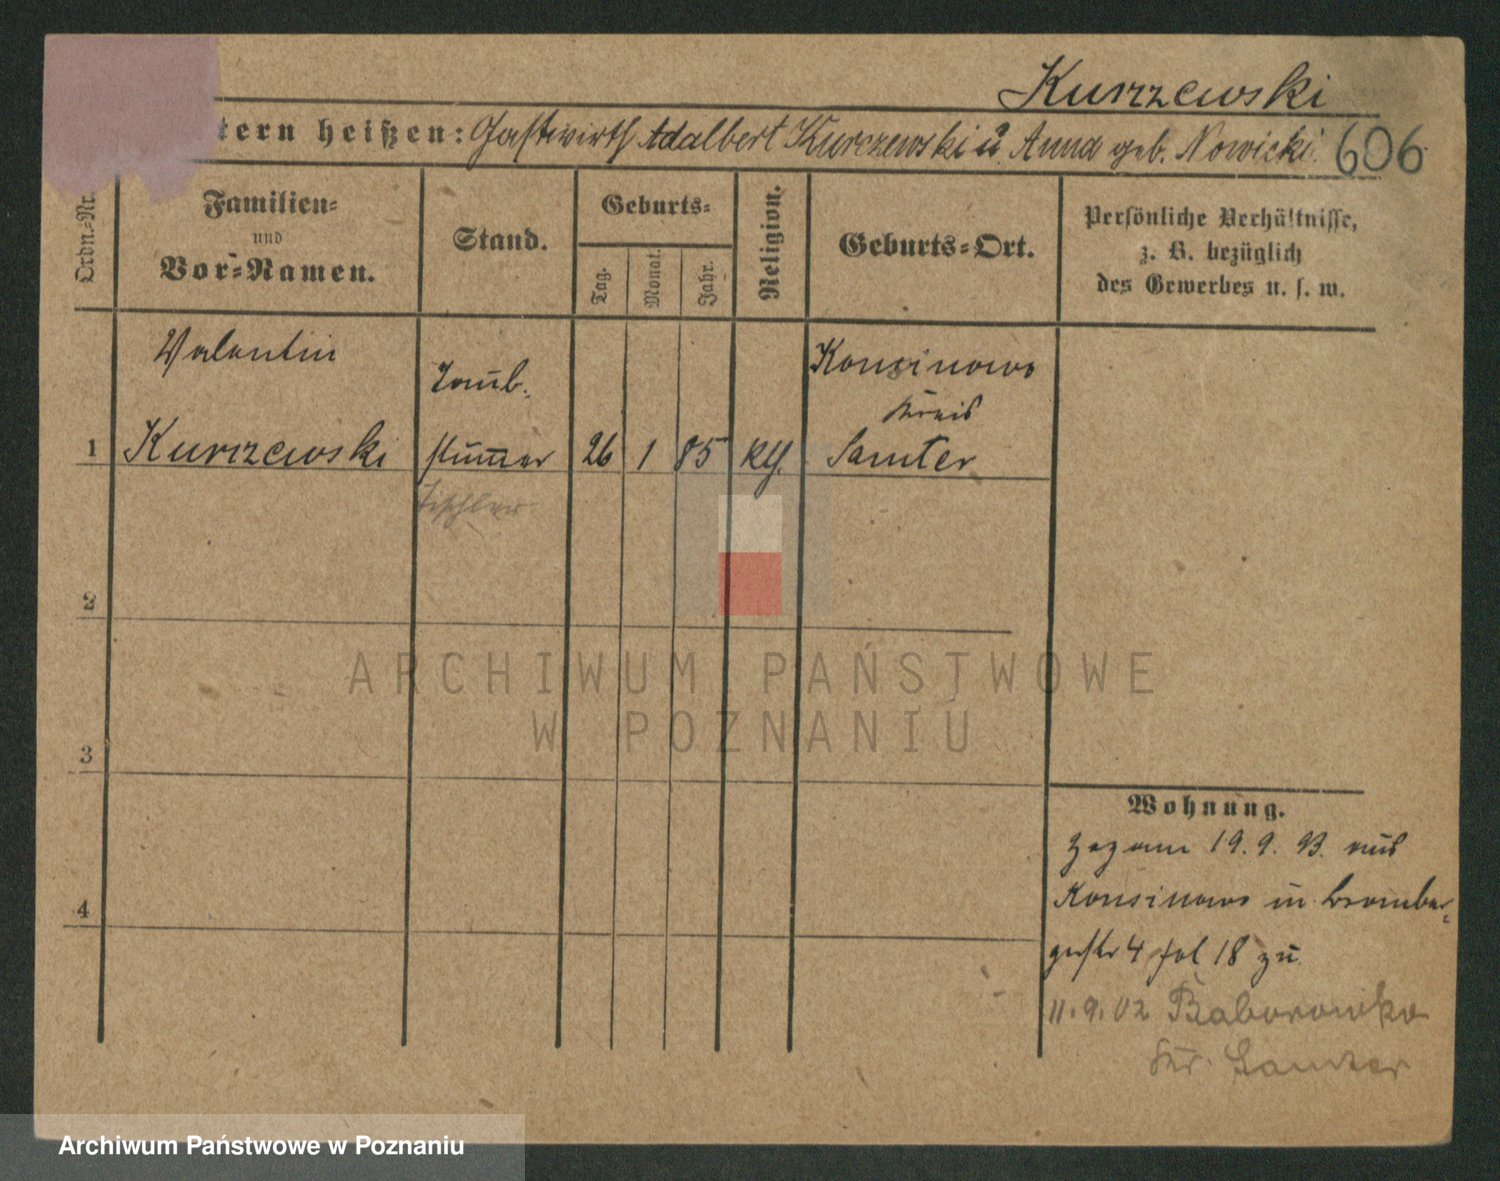 Kurczewski
tern heißen: Gastwirth Adalbert Kurczewski u. Anna geb. Nowicki. 606
Ordn.=Nr.
Familien=
und
Vor=Namen.
Stand.
Geburts=
Tag.
Monat.
Jahr.
Religion.
Geburts=Ort.
Persönliche Verhältnisse,
z. B. bezüglich
des Gewerbes u. s. w.
Valentin
Taub.
Konsinowo
Kreis
1 Kurczewski stummer 26 1 85 kth. Samter
Tischler
2
3
4
ARCHIWUM PAŃSTWOWE
W POZNANIU
Wohnung.
Zog am 19.9.93. aus
Konsinowo in Bromber=
gerstr 4 fol 18 zu
11.9.02 Baborowko
Kr. Samter
Archiwum Państwowe w Poznaniu